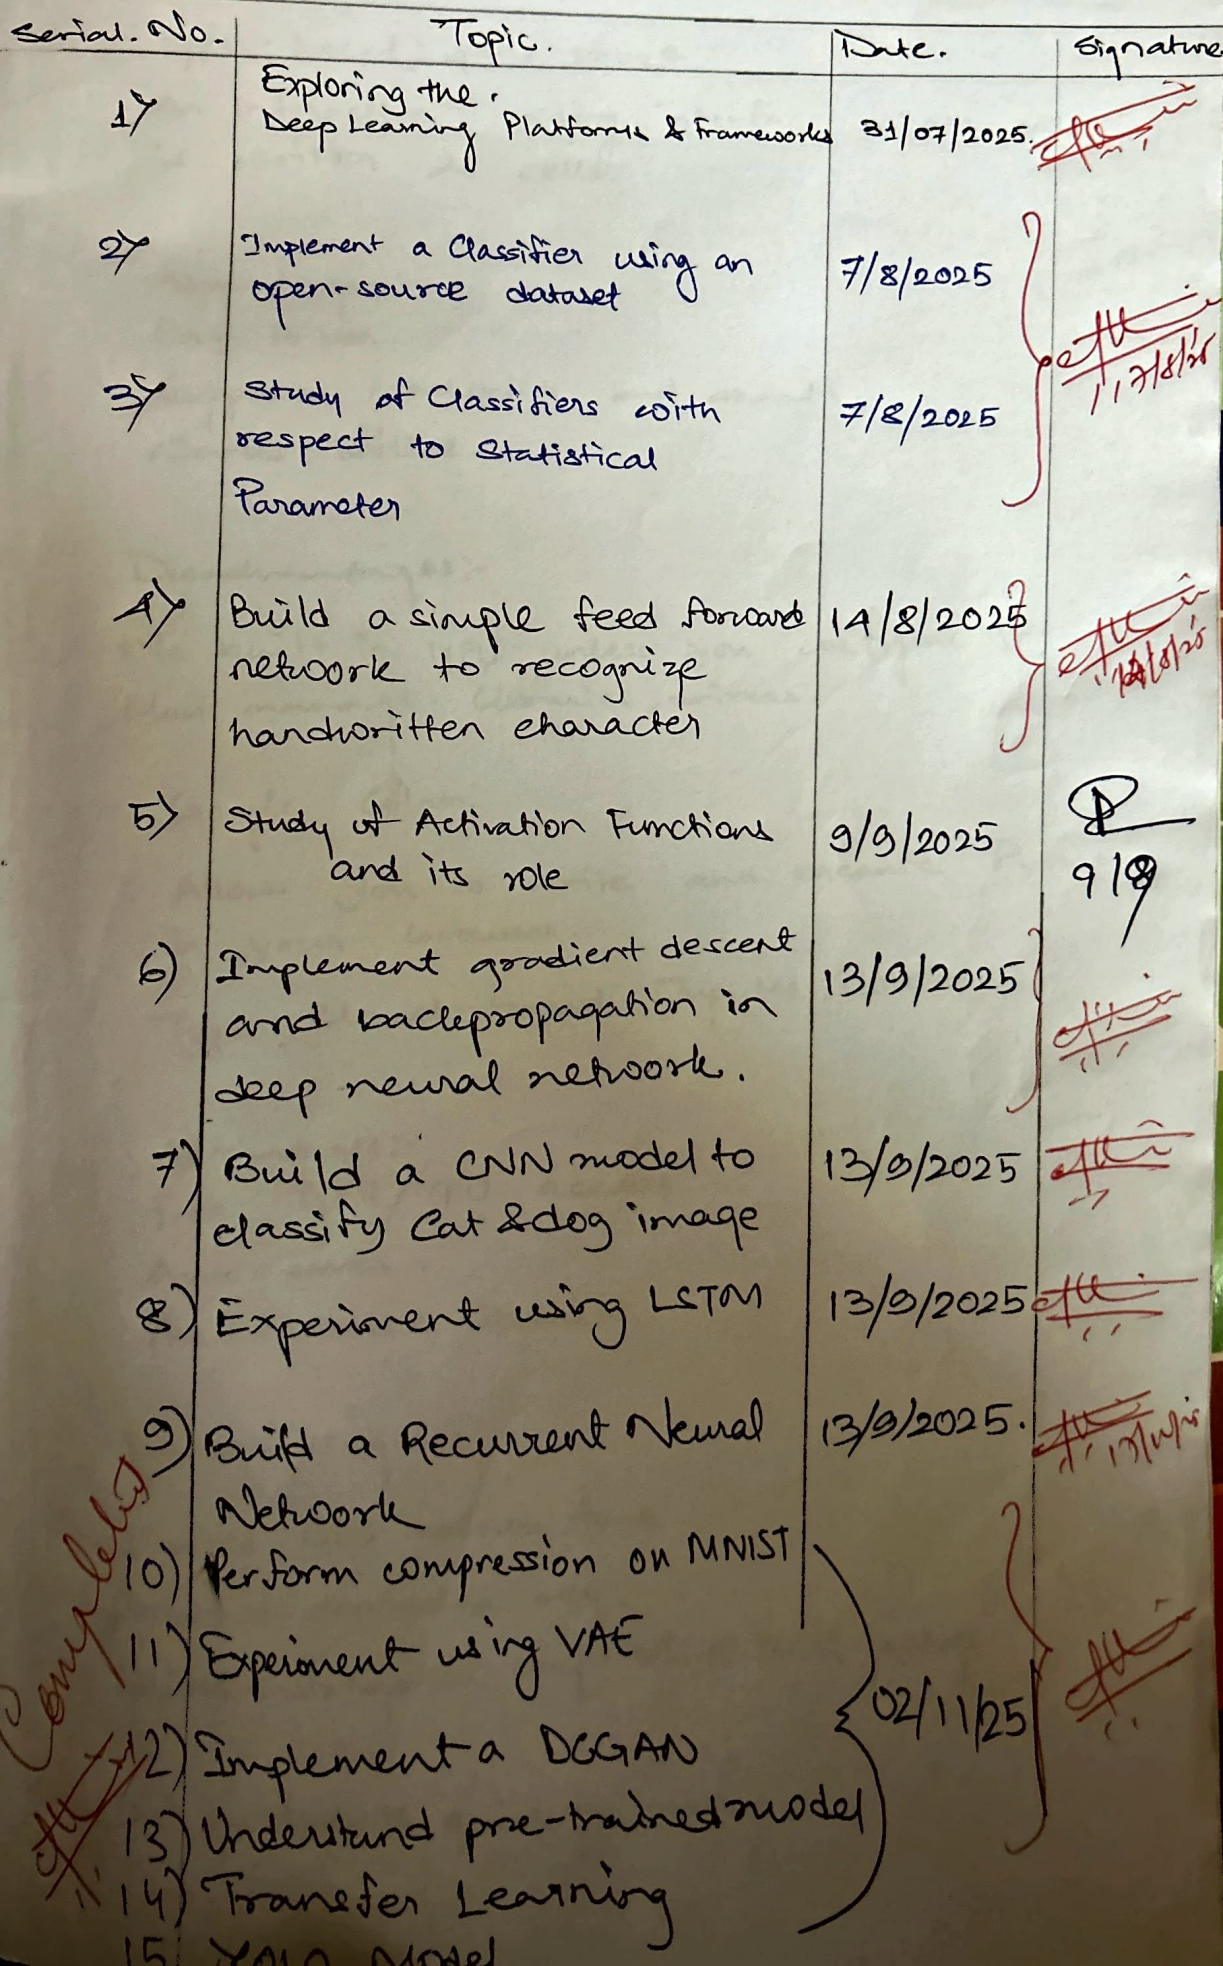 Serial. No. Topic. Date. Signature
Exploring the.
1) Deep Learning Platforms & Frameworks 31/07/2025.
2) Implement a Classifier using an 7/8/2025
open-source dataset
7/8/25
3) Study of Classifiers with 7/8/2025
respect to Statistical
Parameter
4) Build a simple feed forward 14/8/2025
network to recognize
handwritten character
5) Study of Activation Functions 9/9/2025
and its role
6) Implement gradient descent 13/9/2025
and backpropagation in
deep neural network.
7) Build a CNN model to 13/9/2025
classify Cat & dog image
8) Experiment using LSTM 13/9/2025
9) Build a Recurrent Neural 13/9/2025.
Network
10) Perform compression on MNIST
11) Experiment using VAE
02/11/25
12) Implement a DCGAN
13) Understand pre-trained model
14) Transfer Learning
15 Model
Completed